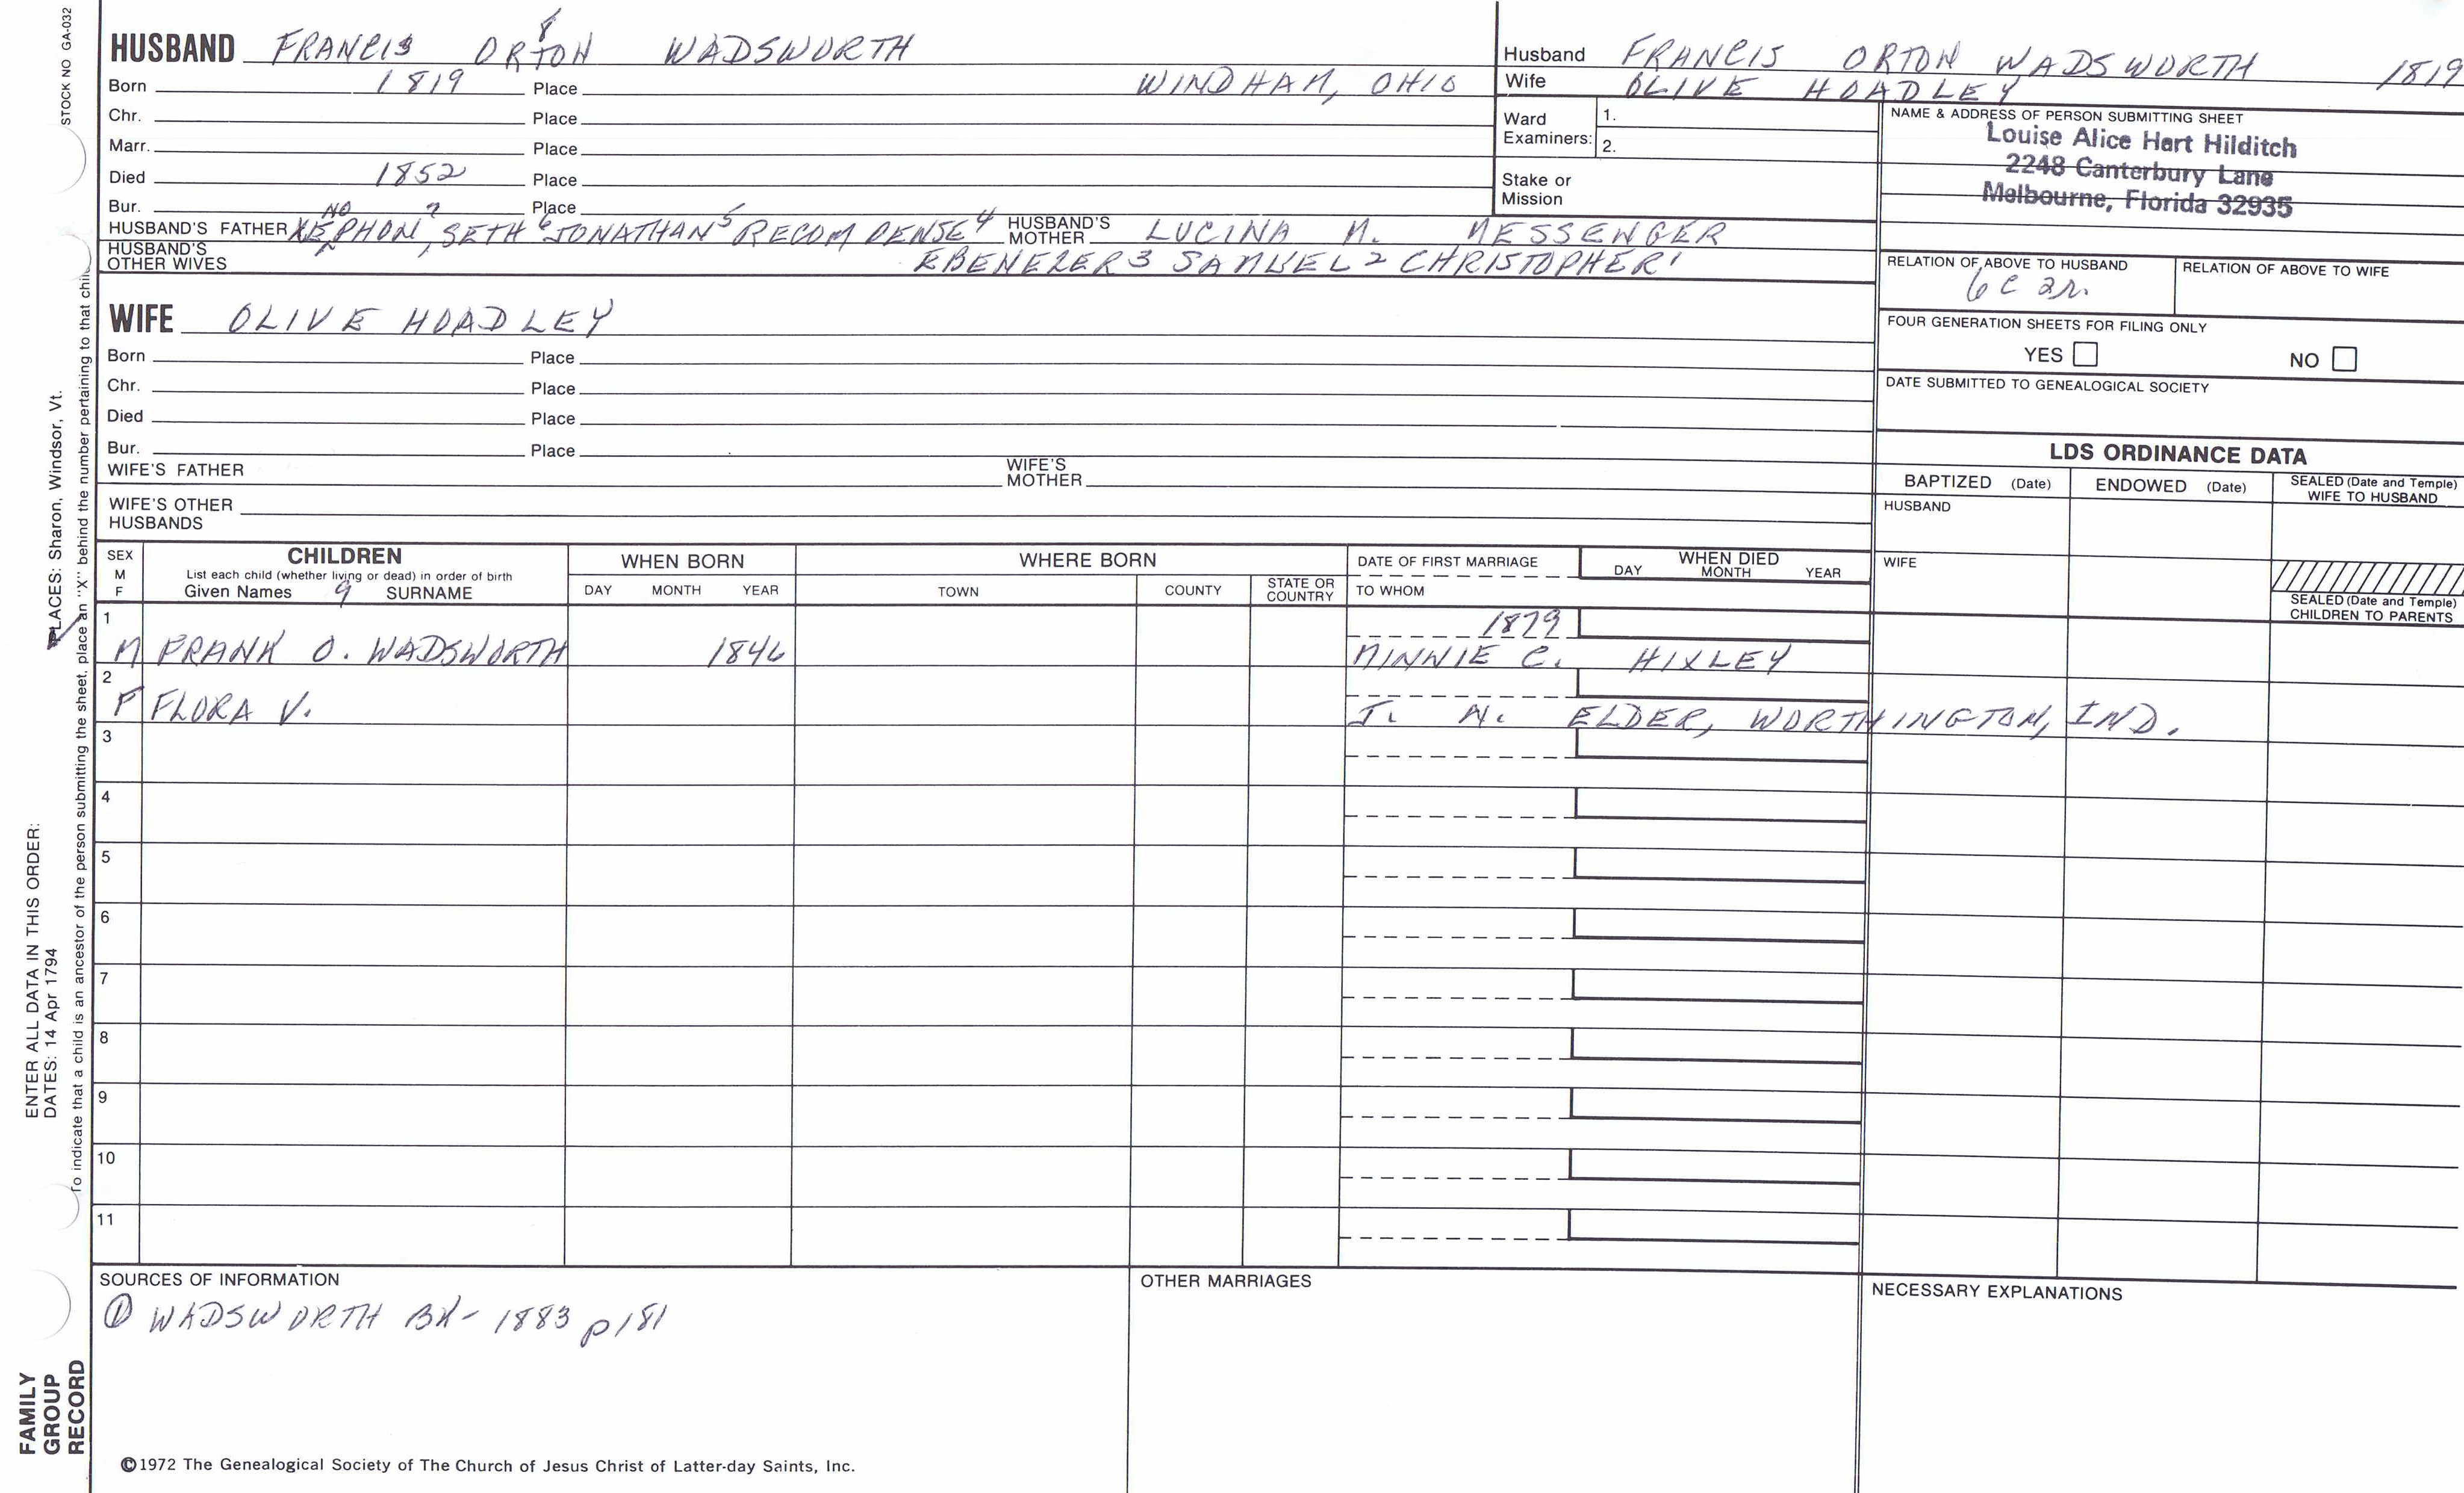 STOCK NO GA-032
HUSBAND FRANCIS ORTON 8 WADSWORTH
Born 1819 Place WINDHAM, OHIO
Chr. Place
Marr. Place
Died 1852 Place
Bur. Place
HUSBAND'S FATHER XENOPHON 7, SETH 6 JONATHAN 5 RECOMPENSE 4 HUSBAND'S MOTHER LUCINA M. MESSENGER
HUSBAND'S OTHER WIVES EBENEZER 3 SAMUEL 2 CHRISTOPHER 1
WIFE OLIVE HOADLEY
Born Place
Chr. Place
Died Place
Bur. Place
WIFE'S FATHER WIFE'S MOTHER
WIFE'S OTHER HUSBANDS
Husband FRANCIS ORTON WADSWORTH 1819
Wife OLIVE HOADLEY
Ward Examiners: 1.
2.
Stake or Mission
NAME & ADDRESS OF PERSON SUBMITTING SHEET
Louise Alice Hart Hilditch
2248 Canterbury Lane
Melbourne, Florida 32935
RELATION OF ABOVE TO HUSBAND RELATION OF ABOVE TO WIFE
6 C 2r.
FOUR GENERATION SHEETS FOR FILING ONLY
YES NO
DATE SUBMITTED TO GENEALOGICAL SOCIETY
LDS ORDINANCE DATA
BAPTIZED (Date) ENDOWED (Date) SEALED (Date and Temple) WIFE TO HUSBAND
HUSBAND
WIFE
SEALED (Date and Temple) CHILDREN TO PARENTS
SEX M F
CHILDREN
List each child (whether living or dead) in order of birth
Given Names 9 SURNAME
WHEN BORN
DAY MONTH YEAR
WHERE BORN
TOWN COUNTY STATE OR COUNTRY
DATE OF FIRST MARRIAGE
TO WHOM
WHEN DIED
DAY MONTH YEAR
1 1879
M FRANK O. WADSWORTH 1846 MINNIE C. HIXLEY
2
F FLORA V. J. M. ELDER, WORTHINGTON, IND.
3
4
5
6
7
8
9
10
11
SOURCES OF INFORMATION
① WADSWORTH BK- 1883 p181
OTHER MARRIAGES
NECESSARY EXPLANATIONS
©1972 The Genealogical Society of The Church of Jesus Christ of Latter-day Saints, Inc.
FAMILY
GROUP
RECORD
ENTER ALL DATA IN THIS ORDER:
DATES: 14 Apr 1794
PLACES: Sharon, Windsor, Vt.
To indicate that a child is an ancestor of the person submitting the sheet, place an "X" behind the number pertaining to that child